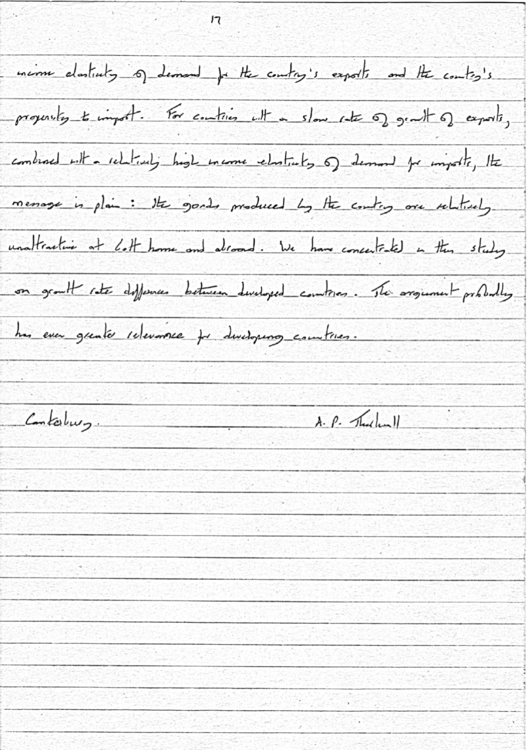 17
income elasticity of demand for the country's exports and the country's
propensity to import. For countries with a slow rate of growth of exports,
combined with a relatively high income elasticity of demand for imports, the
message is plain: the goods produced by the country are relatively
unattractive at both home and abroad. We have concentrated in this study
on growth rate differences between developed countries. The argument probably
has even greater relevance for developing countries.
Canterbury. A. P. Thirlwall